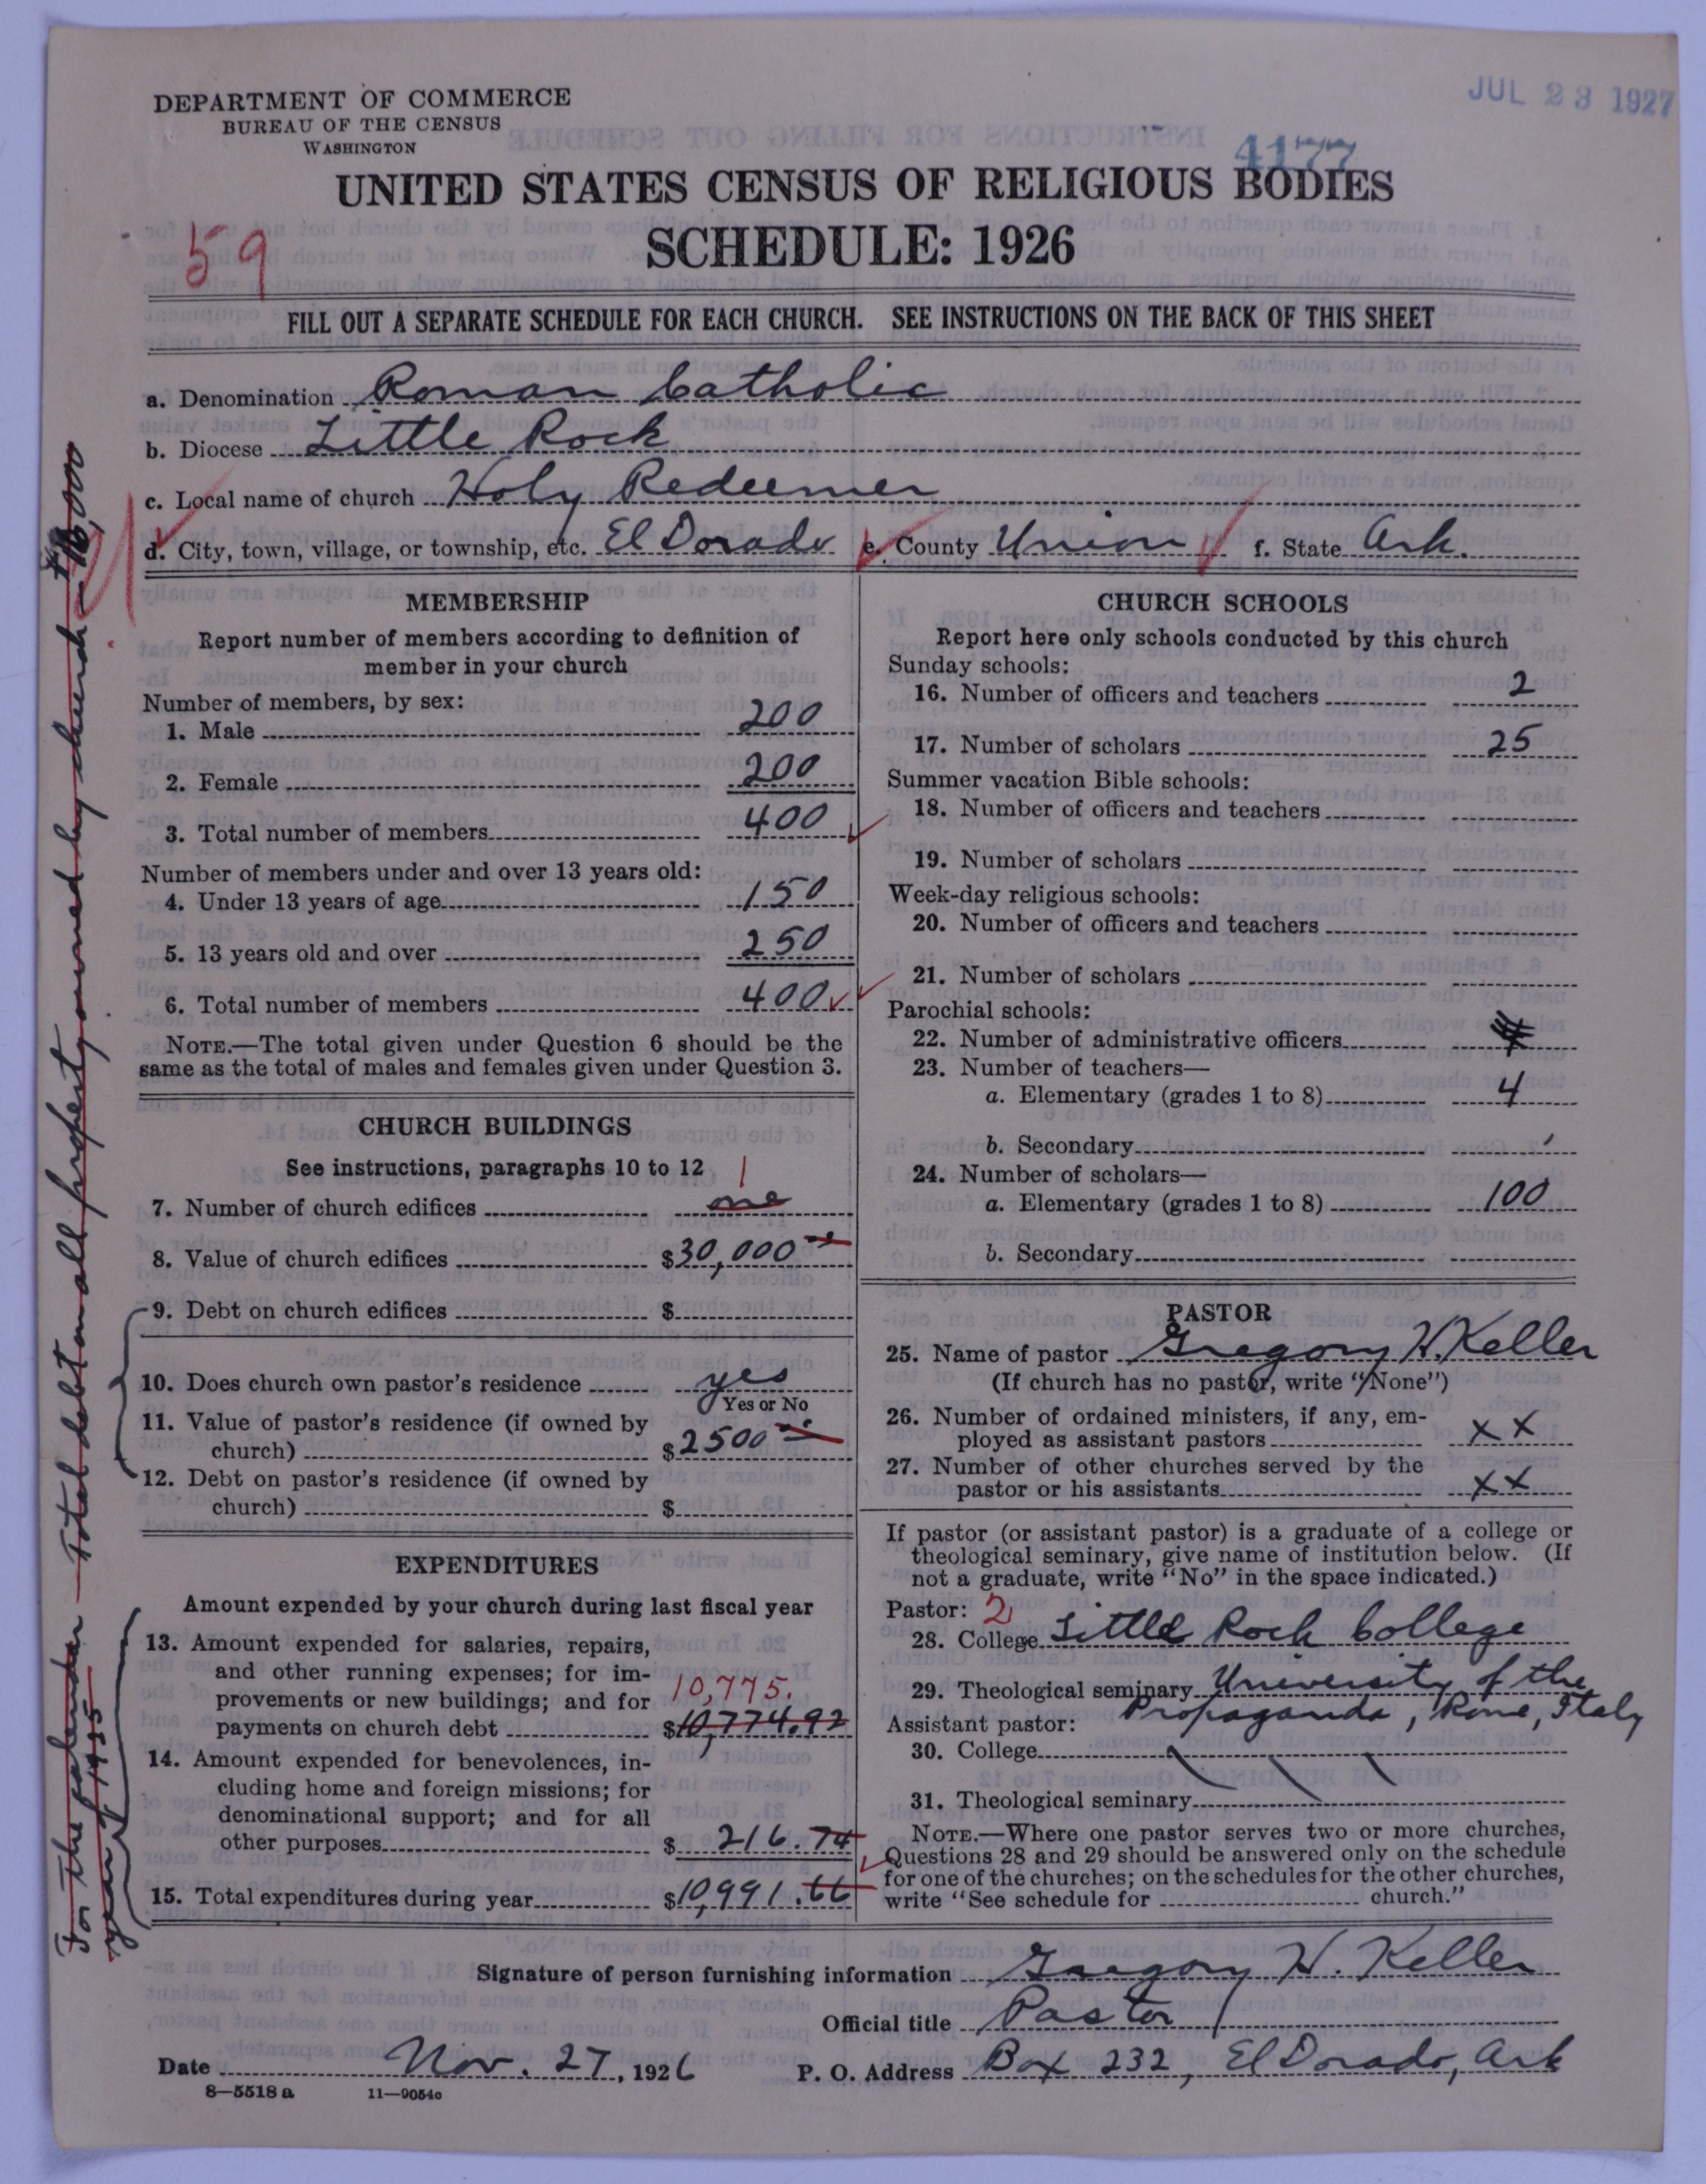 JUL 23 1927
DEPARTMENT OF COMMERCE
BUREAU OF THE CENSUS
WASHINGTON
4177
UNITED STATES CENSUS OF RELIGIOUS BODIES
59
SCHEDULE: 1926
FILL OUT A SEPARATE SCHEDULE FOR EACH CHURCH. SEE INSTRUCTIONS ON THE BACK OF THIS SHEET
a. Denomination Roman Catholic
b. Diocese Little Rock
c. Local name of church Holy Redeemer
d. City, town, village, or township, etc. El Dorado e. County Union f. State Ark.
MEMBERSHIP
Report number of members according to definition of
member in your church
Number of members, by sex:
1. Male 200
2. Female 200
3. Total number of members 400
Number of members under and over 13 years old:
4. Under 13 years of age 150
5. 13 years old and over 250
6. Total number of members 400
NOTE.—The total given under Question 6 should be the
same as the total of males and females given under Question 3.
CHURCH BUILDINGS
See instructions, paragraphs 10 to 12
1
7. Number of church edifices one
8. Value of church edifices $30,000
9. Debt on church edifices $
10. Does church own pastor's residence yes
Yes or No
11. Value of pastor's residence (if owned by
church) $2500
12. Debt on pastor's residence (if owned by
church) $
EXPENDITURES
Amount expended by your church during last fiscal year
13. Amount expended for salaries, repairs,
and other running expenses; for im-
provements or new buildings; and for 10,775.
payments on church debt $10,774.92
14. Amount expended for benevolences, in-
cluding home and foreign missions; for
denominational support; and for all
other purposes $216.74
15. Total expenditures during year $10,991.66
Total debt on all property owned by church
For the calendar
year of 1925
CHURCH SCHOOLS
Report here only schools conducted by this church
Sunday schools:
16. Number of officers and teachers 2
17. Number of scholars 25
Summer vacation Bible schools:
18. Number of officers and teachers
19. Number of scholars
Week-day religious schools:
20. Number of officers and teachers
21. Number of scholars
Parochial schools:
22. Number of administrative officers
23. Number of teachers—
a. Elementary (grades 1 to 8) 4
b. Secondary
24. Number of scholars—
a. Elementary (grades 1 to 8) 100
b. Secondary
PASTOR
25. Name of pastor Gregory H. Keller
(If church has no pastor, write "None")
26. Number of ordained ministers, if any, em-
ployed as assistant pastors x x
27. Number of other churches served by the
pastor or his assistants x x
If pastor (or assistant pastor) is a graduate of a college or
theological seminary, give name of institution below. (If
not a graduate, write "No" in the space indicated.)
Pastor: 2
28. College Little Rock College
29. Theological seminary University of the
Propaganda, Rome, Italy
Assistant pastor:
30. College
31. Theological seminary
NOTE.—Where one pastor serves two or more churches,
Questions 28 and 29 should be answered only on the schedule
for one of the churches; on the schedules for the other churches,
write "See schedule for church."
Signature of person furnishing information Gregory H. Keller
Official title Pastor
Date Nov. 27, 1926 P. O. Address Box 232, El Dorado, Ark
8—5518 a 11—9054c